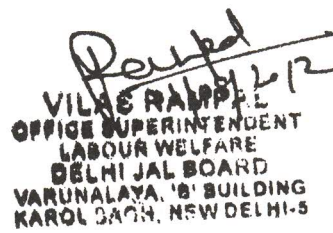 VILAS RAMPAL
OFFICE SUPERINTENDENT
LABOUR WELFARE
DELHI JAL BOARD
VARUNALAYA, 'B' BUILDING
KAROL BAGH, NEW DELHI-5